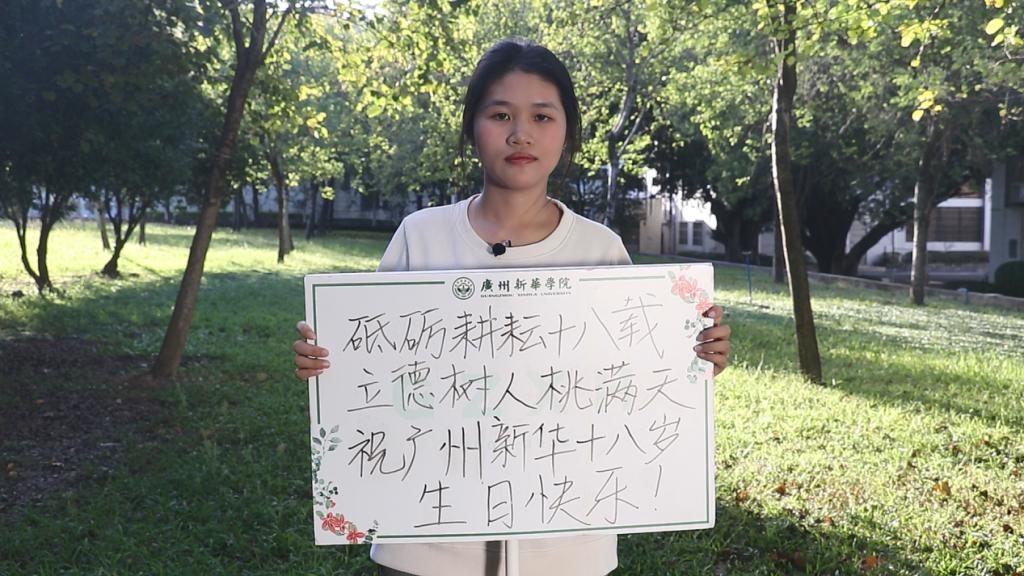 廣州新華學院
GUANGZHOU XINHUA UNIVERSITY
砥砺耕耘十八载
立德树人桃满天
祝广州新华十八岁
生日快乐!